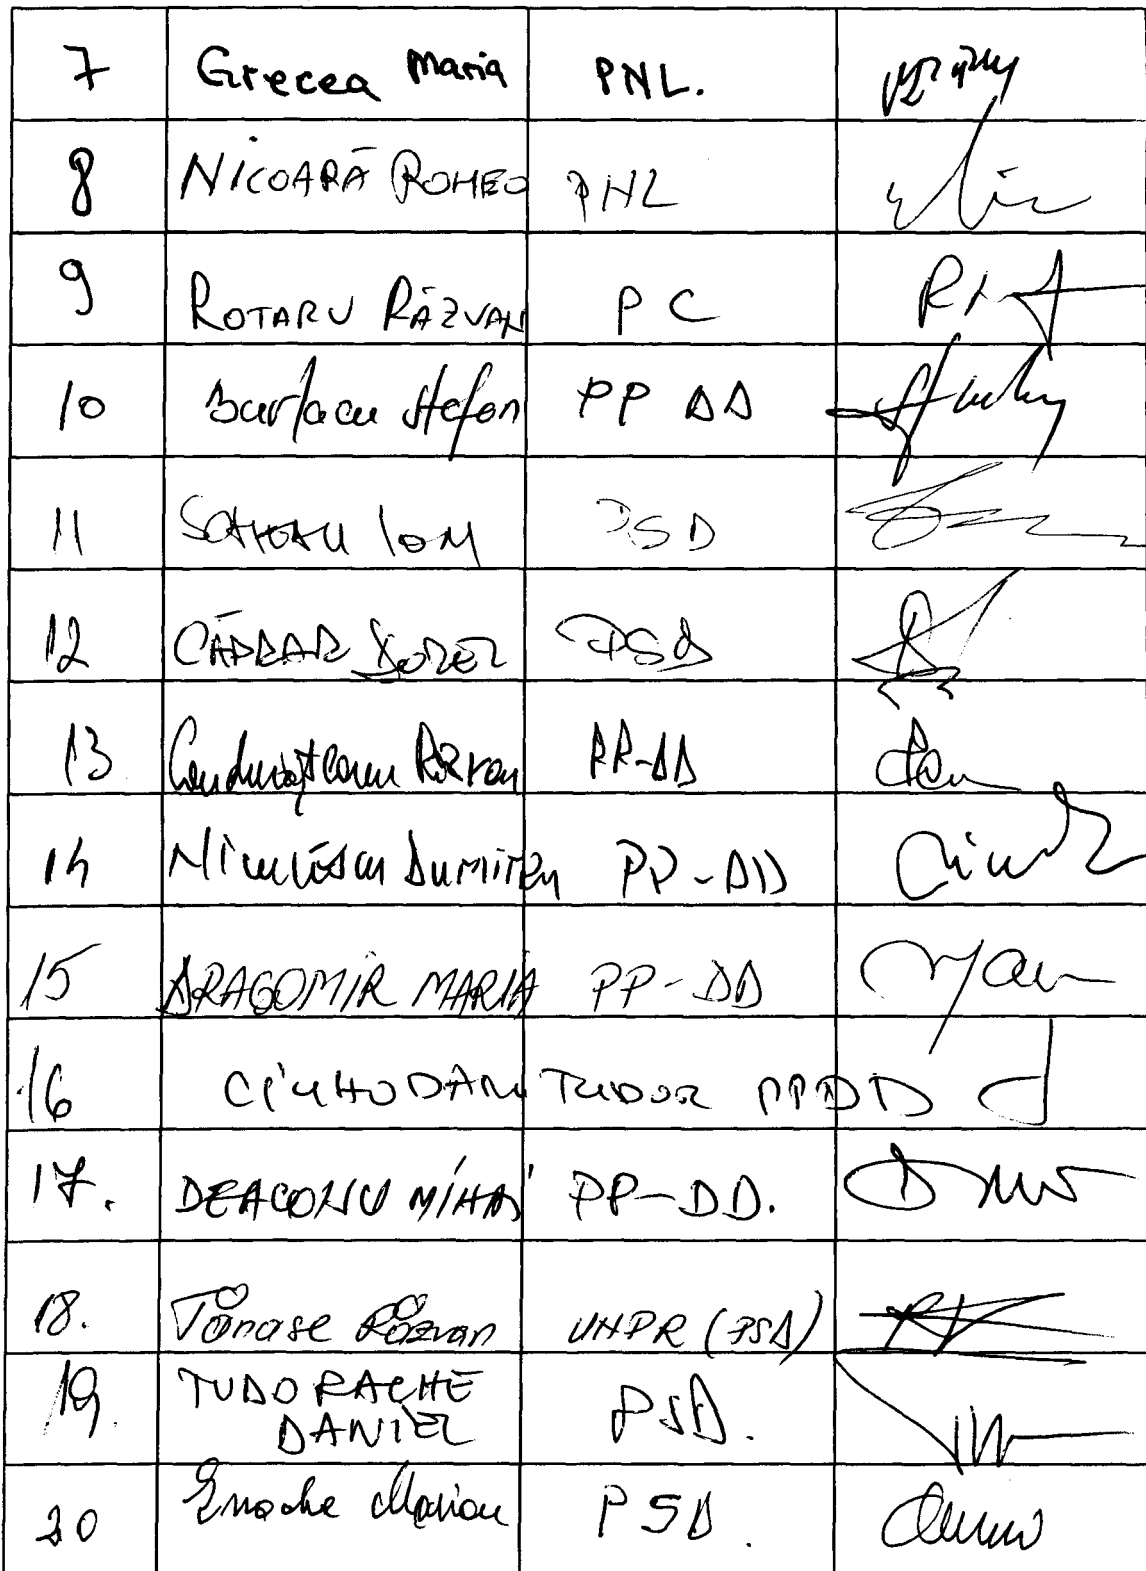 7 Grecea Maria PNL.
8 NICOARĂ ROMEO PNL
9 ROTARU RĂZVAN PC
10 Burlacu Stefan PP DD
11 ION PSD
12 DOREL PSD
13 Răzvan PP-DD
14 Niculescu Dumitru PP-DD
15 DRAGOMIR MARIA PP-DD
16 CIUHODARU TUDOR PPDD
17. DEACONU MIHAI PP-DD.
18. Tănase Răzvan UNPR (PSD)
19. TUDORACHE PSD.
DANIEL
20 Enache Marian PSD.